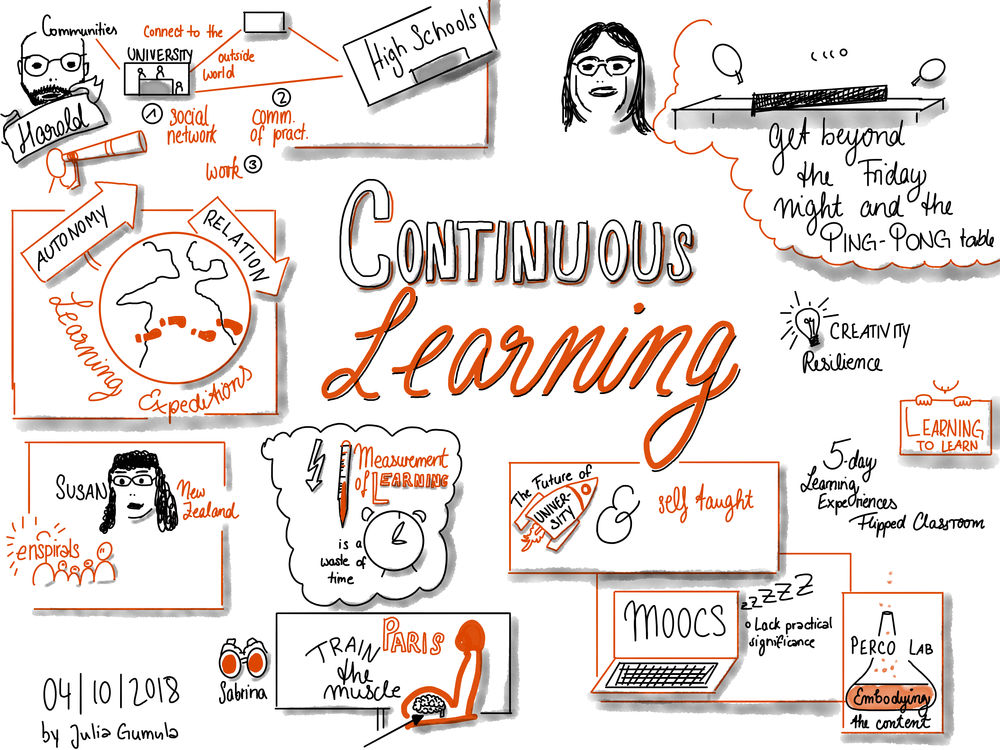 Communities
Connect to the
outside
world
UNIVERSITY
High Schools
Harold
1 social
network
2
comm.
of pract.
work 3
AUTONOMY
RELATION
Learning
Expeditions
CONTINUOUS
Learning
Get beyond
the Friday
night and the
PING-PONG table
CREATIVITY
Resilience
LEARNING
TO LEARN
5-day
Learning
Experiences
Flipped Classroom
SUSAN
New
Zealand
enspirals
Measurement
of LEARNING
is a
waste of
time
The Future of
UNIVER-
SITY
&
self taught
MOOCS
zzZZZ
Lack practical
significance
PERCO LAB
Embodying
the content
Sabrina
PARIS
TRAIN
the
muscle
04/10/2018
by Julia Gumula